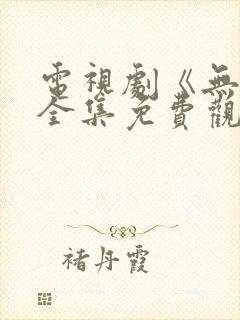 電視劇《無
全集免費觀
褚丹霞